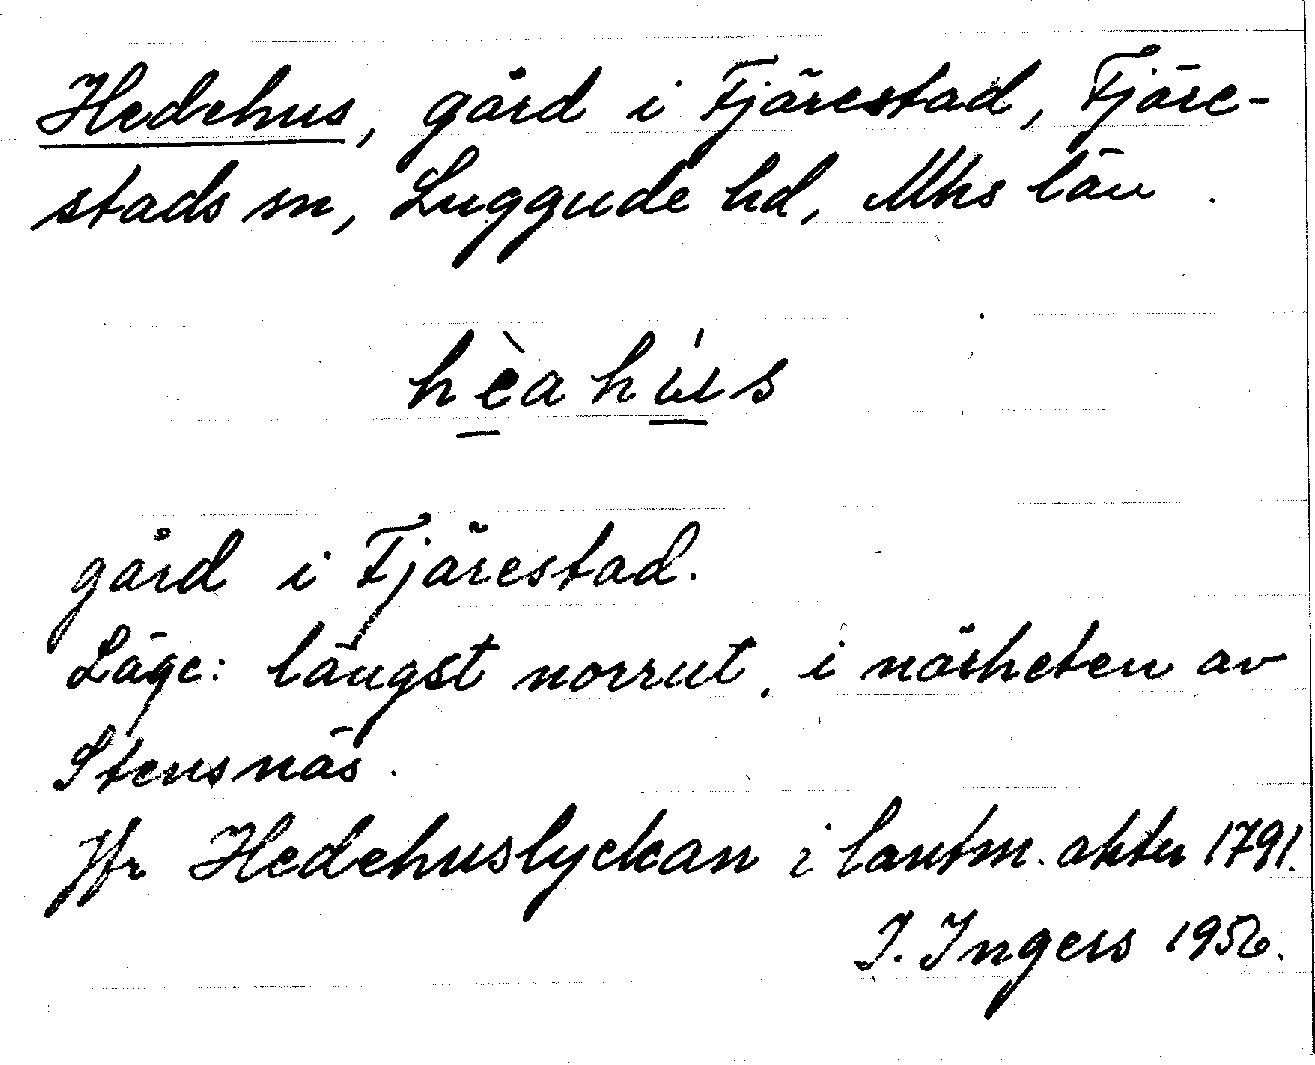 Hedehus, gård i Fjärestad, Fjäre-
stads sn, Luggude hd, Mhs län.
hèahús
gård i Fjärestad.
Läge: längst norrut, i närheten av
Stensnäs.
Jfr Hedehuslyckan i lantm. akten 1791.
I. Ingers 1956.